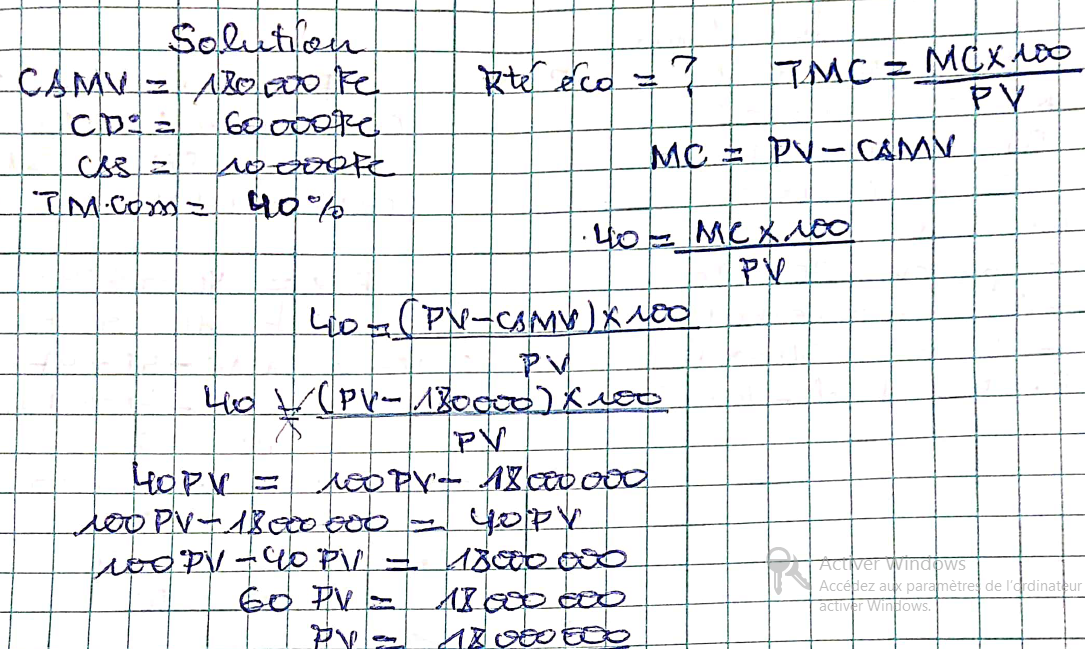 Solution
CAMV = 180000 Fc Rté éco = ? TMC = MC x 100 / PV
CD° = 60000Fc
MC = PV - CAMV
CSS = 10000Fc
TM.com = 40%
40 = MC x 100 / PV
40 = (PV-CAMV) x 100 / PV
40 = (PV-180000) x 100 / PV
40PV = 100PV - 18000000
100PV - 18000000 = 40PV
100PV - 40PV = 18000000
60 PV = 18000000
PV = 18000000
Activer Windows
Accédez aux paramètres de l'ordinateur
activer Windows.